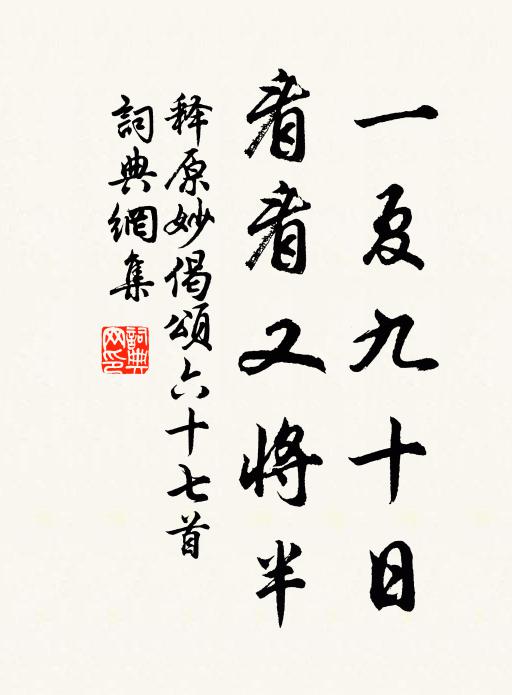 一夏九十日
看看又将半
释原妙偈颂六十七首
詞典網集
詞典網印